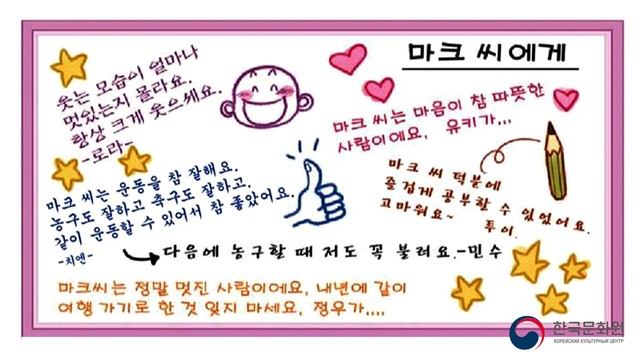 마크 씨에게
웃는 모습이 얼마나
멋있는지 몰라요.
항상 크게 웃으세요.
-로라-
마크 씨는 마음이 참 따뜻한
사람이에요, 유키가...
마크 씨는 운동을 참 잘해요.
농구도 잘하고 축구도 잘하고.
같이 운동할 수 있어서 참 좋았어요.
-치엔-
마크 씨 덕분에
즐겁게 공부할 수 있었어요.
고마워요~ 투이.
다음에 농구할 때 저도 꼭 불러요.-민수
마크씨는 정말 멋진 사람이에요, 내년에 같이
여행 가기로 한 것 잊지 마세요, 정우가....
한국문화원
КОРЕЙСКИЙ КУЛЬТУРНЫЙ ЦЕНТР